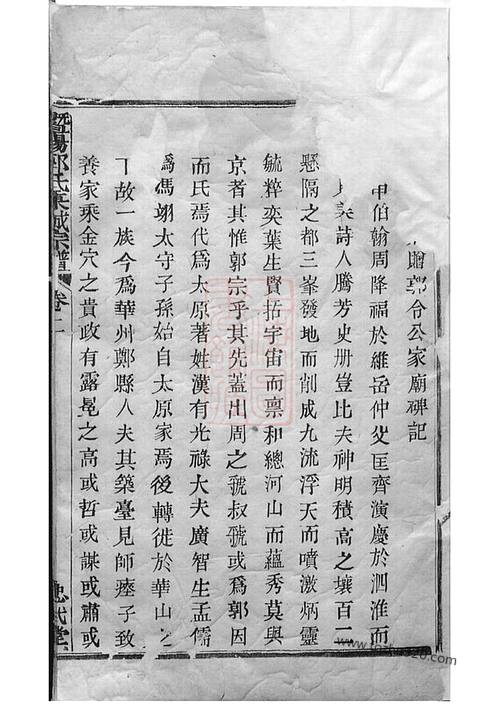 贈郭令公家廟碑記
申伯翰周降福於維岳仲父匡齊演慶於泗淮而
美詩人騰芳史册豈比夫神明積高之壤百二
懸隔之都三峯發地而削成九流浮天而噴激炳靈
毓粹奕葉生賢括宇宙而禀和總河山而蘊秀莫與
京者其惟郭宗乎其先蓋出周之虢叔虢或爲郭因
而氏焉代爲太原著姓漢有光祿大夫廣智生孟儒
爲馮翊太守子孫始自太原家焉後轉徙於華山之
故一族今爲華州鄭縣人夫其築臺見師瘞子致
養家乘金穴之貴政有露冕之高或哲或謀或肅或
暨陽郭氏宗譜
卷二
忠武堂